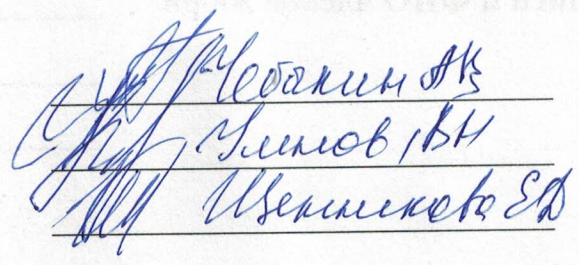 Чебыкин АВ
Улитов ВН
Щенникова ЕД